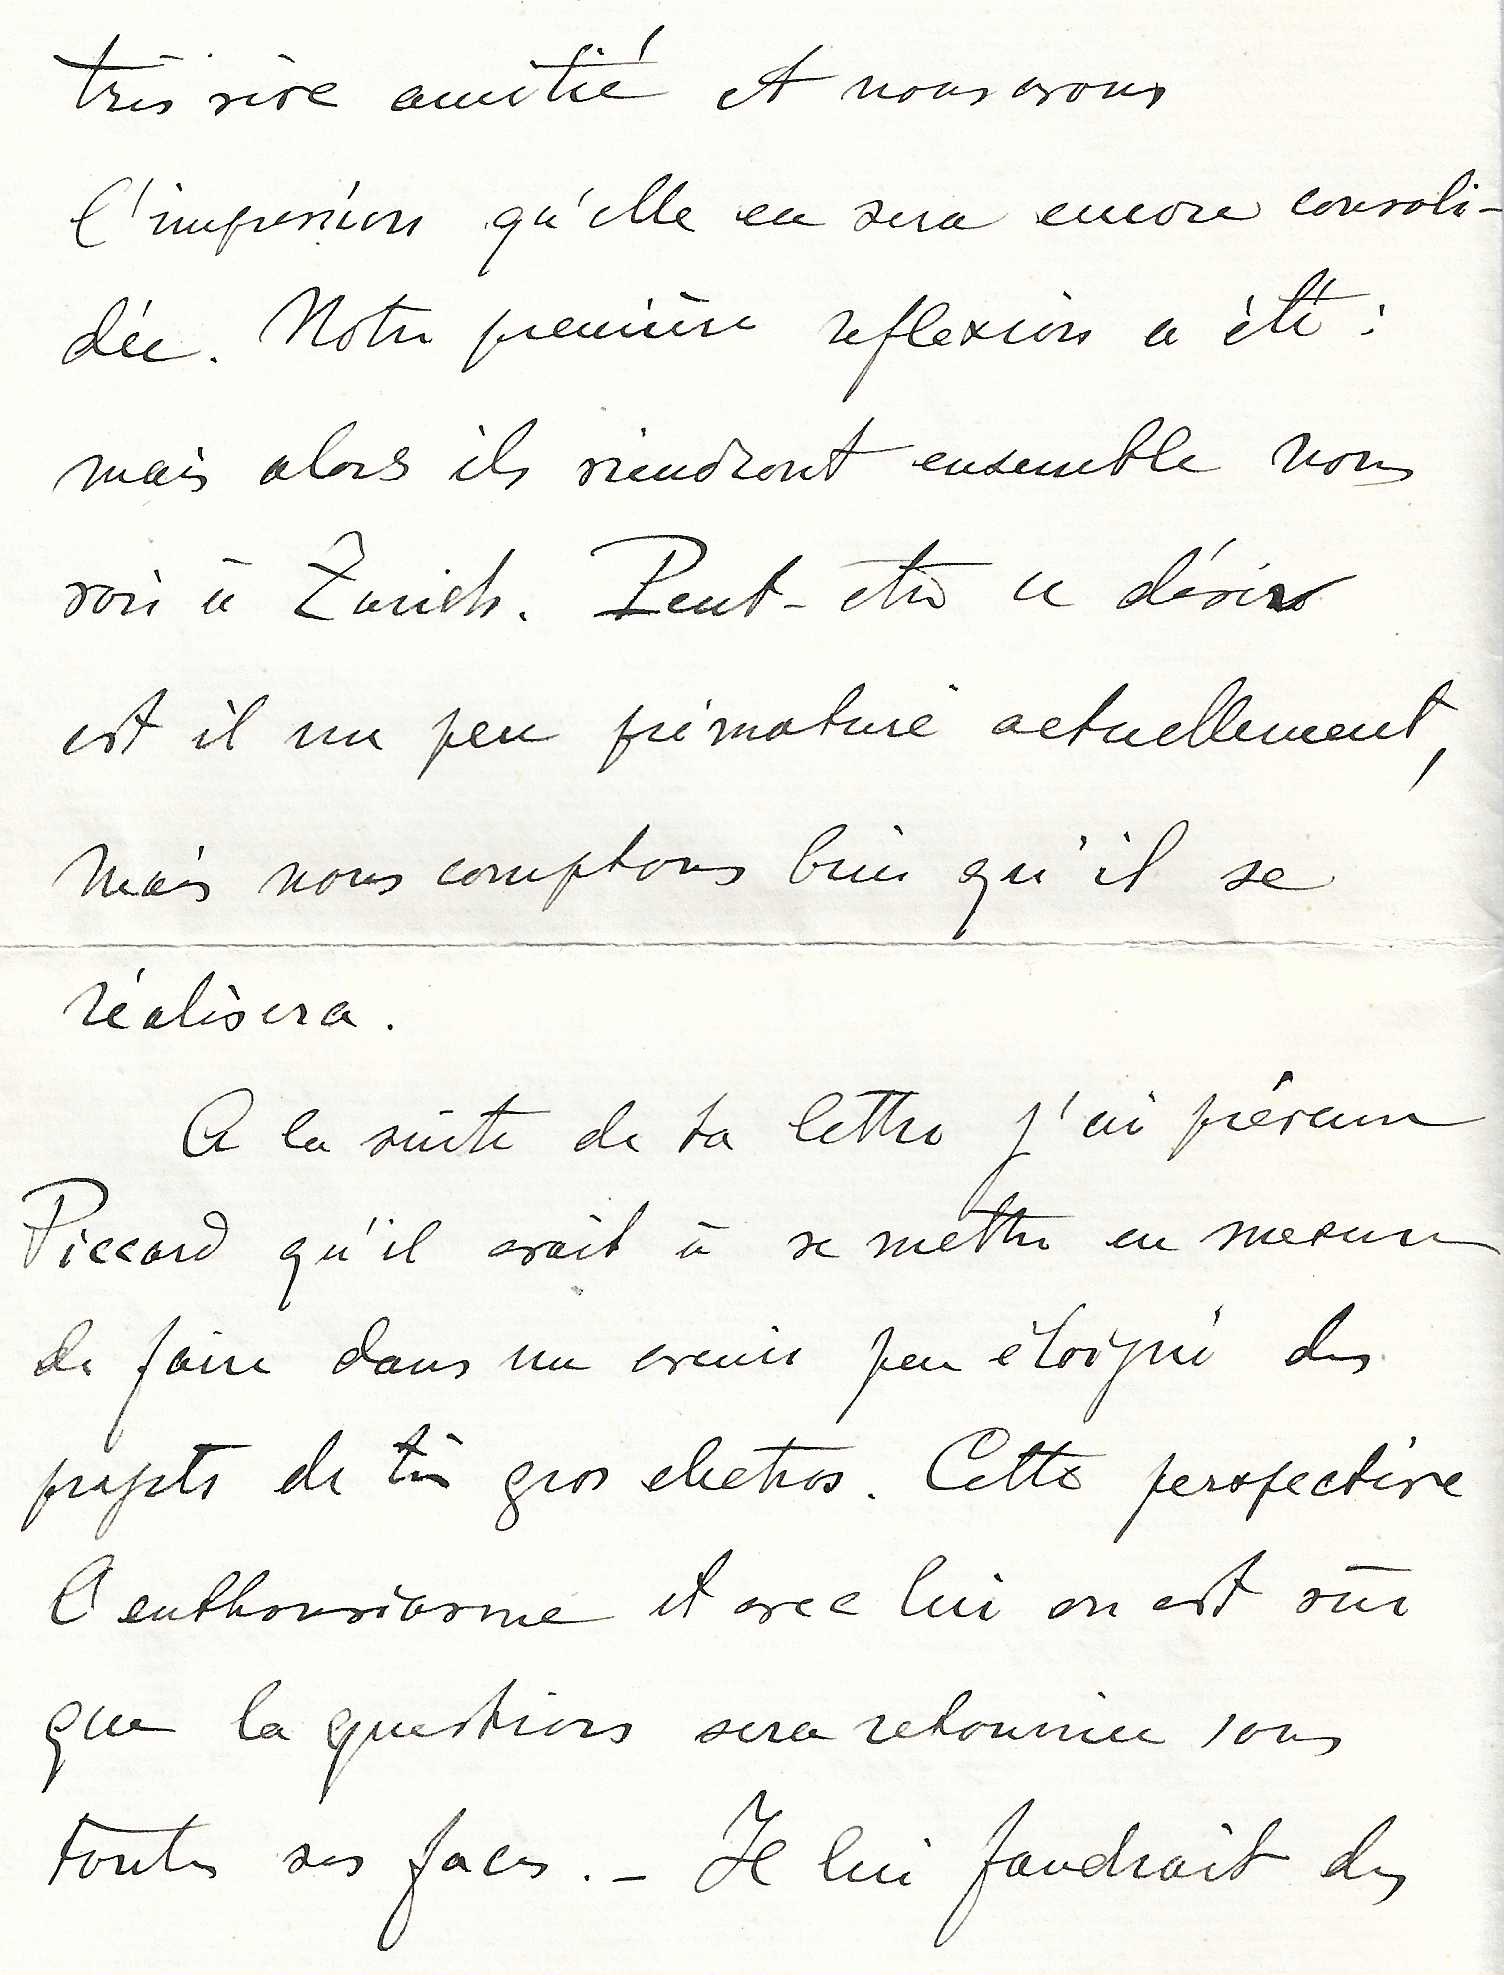 très vive amitié et nous avons
l'impression qu'elle en sera encore consoli-
dée. Notre première reflexion a été :
mais alors ils viendront ensemble nous
voir à Zurich. Peut-être ce désir
est il un peu prématuré actuellement,
mais nous comptons bien qu'il se
réalisera.
A la suite de ta lettre j'ai prévenu
Piccard qu'il avait à se mettre en mesure
de faire dans un avenir peu éloigné des
projets de très gros electros. Cette perspective
l'enthousiasme et avec lui on est sûr
que la question sera retournée sous
toutes ses faces. – Il lui faudrait des